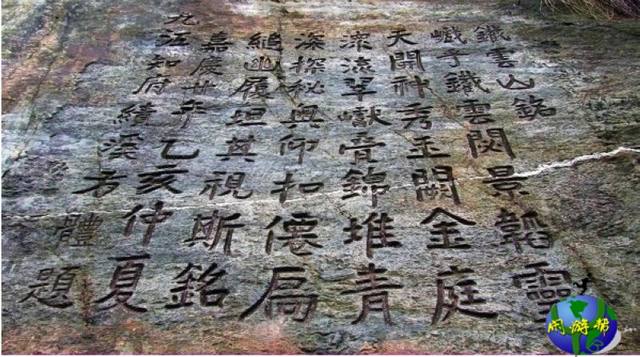 鐵雲山銘
巀乎鐵雲閟景韜靈
天開神秀玉闕金庭
流翠巘膏錦堆青
深探秘奧仰扣僊扃
縋幽履坦其視斯銘
嘉慶廿年乙亥仲夏
九江知府績溪方體題
闲游帮